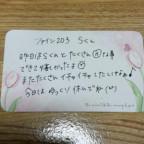 ツイン203 Sくん
昨日はSくんとたくさん㊙な事
できて嬉しかったよ♡
またたくさんイチャイチャしたいけどね
今日は ゆっくり 休んでね